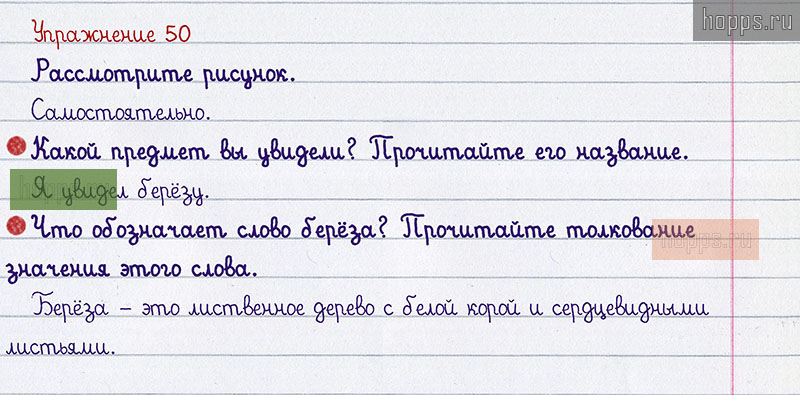 hopps.ru
Упражнение 50
Рассмотрите рисунок.
Самостоятельно.
Какой предмет вы увидели? Прочитайте его название.
Я увидел берёзу.
Что обозначает слово берёза? Прочитайте толкование
hopps.ru
значения этого слова.
Берёза – это лиственное дерево с белой корой и сердцевидными
листьями.